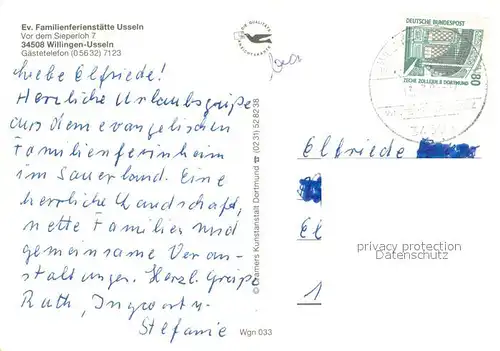 Ev. Familienferienstätte Usseln
Vor dem Sieperloh 7
34508 Willingen-Usseln
Gästetelefon (0 56 32) 71 23
Liebe Elfriede!
Herzliche Urlaubsgrüße
aus dem evangelischen
Familienferienheim
im Sauerland. Eine
herrliche Landschaft,
nette Familien und
gemeinsame Veran-
staltungen. Herzl. Grüße
Ruth, Ingwart u.
Stefanie
Wgn 033
© Cramers Kunstanstalt Dortmund ☎ (0231) 528238
DEUTSCHE BUNDESPOST
80
ZECHE ZOLLERN II DORTMUND
Elfriede
El
1
privacy protection
Datenschutz